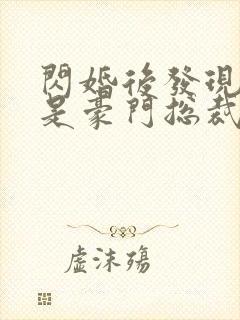 閃婚後發現
是豪門總裁
虛沫殤